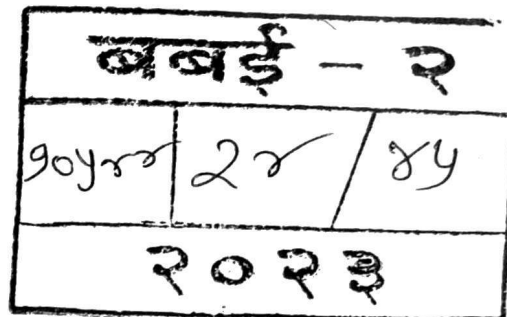 बबई - २
१०५४४ २४ / ४५
२०२३